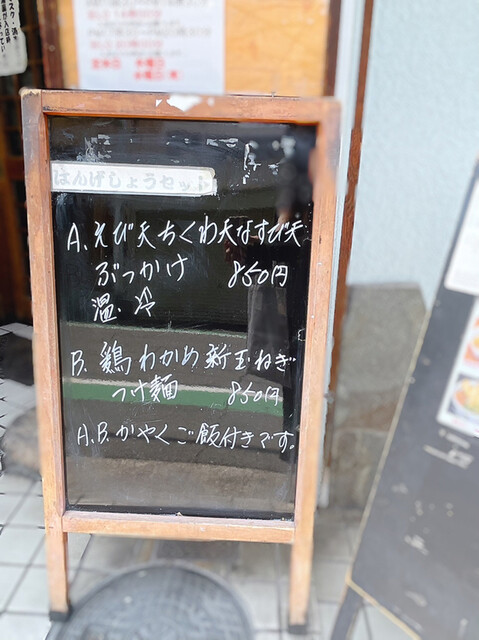 はんげしょうセット
A. えび天ちくわ天なすび天
ぶっかけ 850円
温、冷
B. 鶏わかめ新玉ねぎ
つけ麺 850円
A.B.かやくご飯付きです。